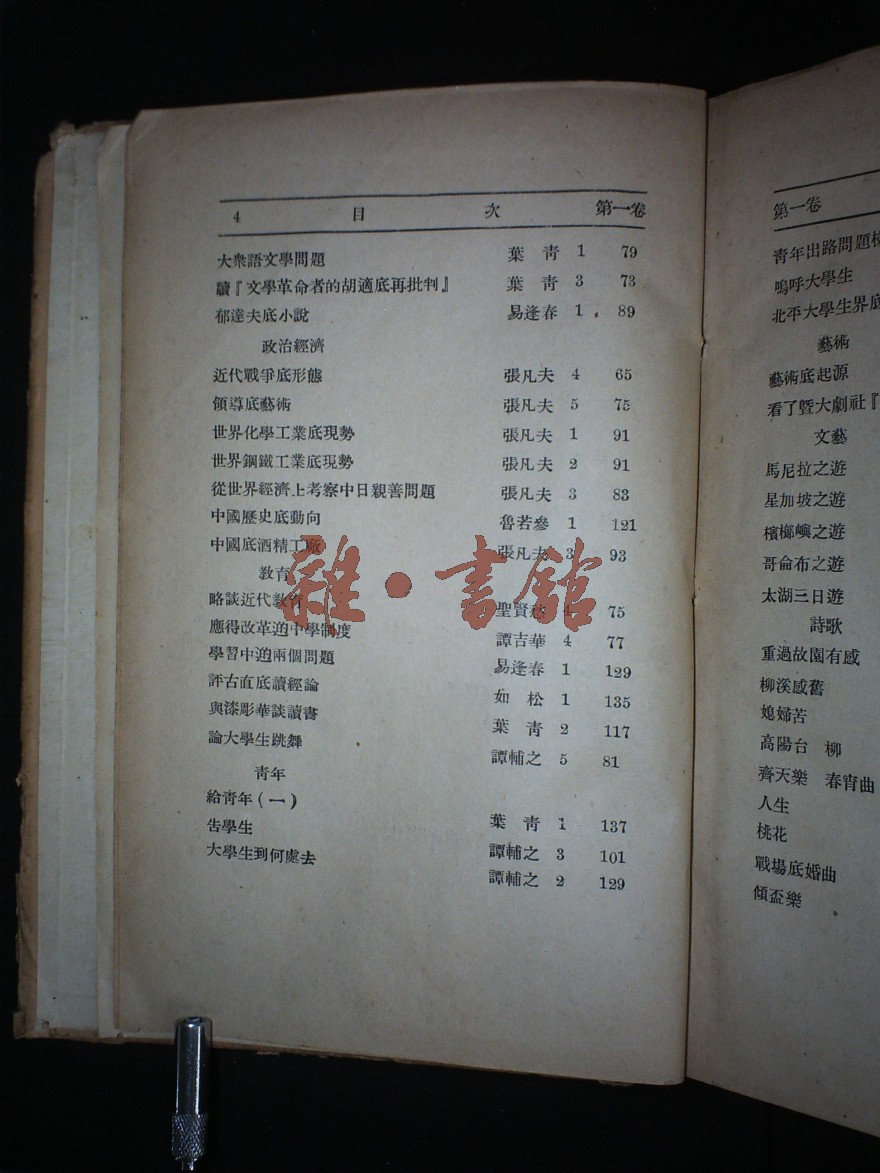 4 目 次 第一卷
大衆語文學問題 葉 靑 1 79
讀『文學革命者的胡適底再批判』 葉 靑 3 73
郁達夫底小說 易逢春 1 89
政治經濟
近代戰爭底形態 張凡夫 4 65
領導底藝術 張凡夫 5 75
世界化學工業底現勢 張凡夫 1 91
世界鋼鐵工業底現勢 張凡夫 2 91
從世界經濟上考察中日親善問題 張凡夫 3 83
中國歷史底動向 魯若參 1 121
中國底酒精工廠 張凡夫 3 93
敎育
略談近代敎育 聖賢 4 75
應得改革逈中學制度 譚吉華 4 77
學習中逈兩個問題 易逢春 1 129
評古直底讀經論 如 松 1 135
與漆彫華談讀書 葉 靑 2 117
論大學生跳舞 譚輔之 5 81
靑年
給靑年(一) 葉 靑 1 137
吿學生 譚輔之 3 101
大學生到何處去 譚輔之 2 129
雜·書館
第一卷
靑年出路問題
嗚呼大學生
北平大學生界底
藝術
藝術底起源
看了曁大劇社『
文藝
馬尼拉之遊
星加坡之遊
檳榔嶼之遊
哥侖布之遊
太湖三日遊
詩歌
重過故園有感
柳溪感舊
媳婦苦
高陽台 柳
齊天樂 春宵曲
人生
桃花
戰場底婚曲
傾盃樂